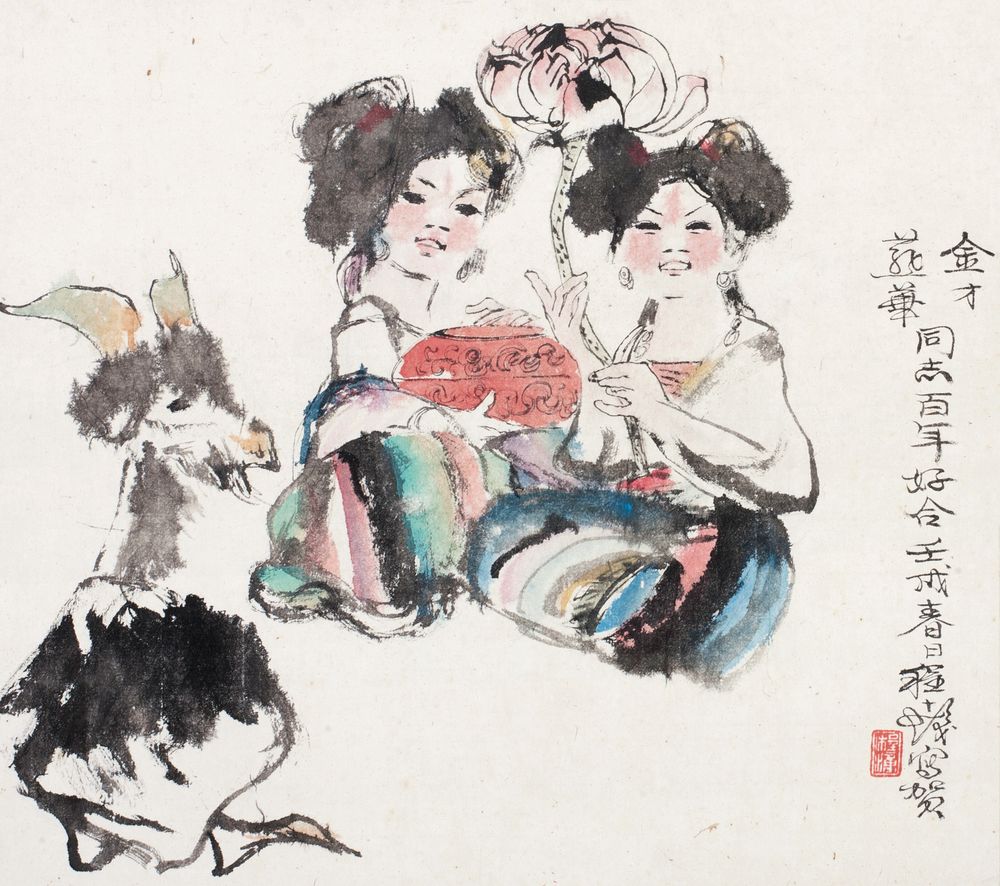 金才
燕華
同志百年好合壬戌春日程十髮寫賀